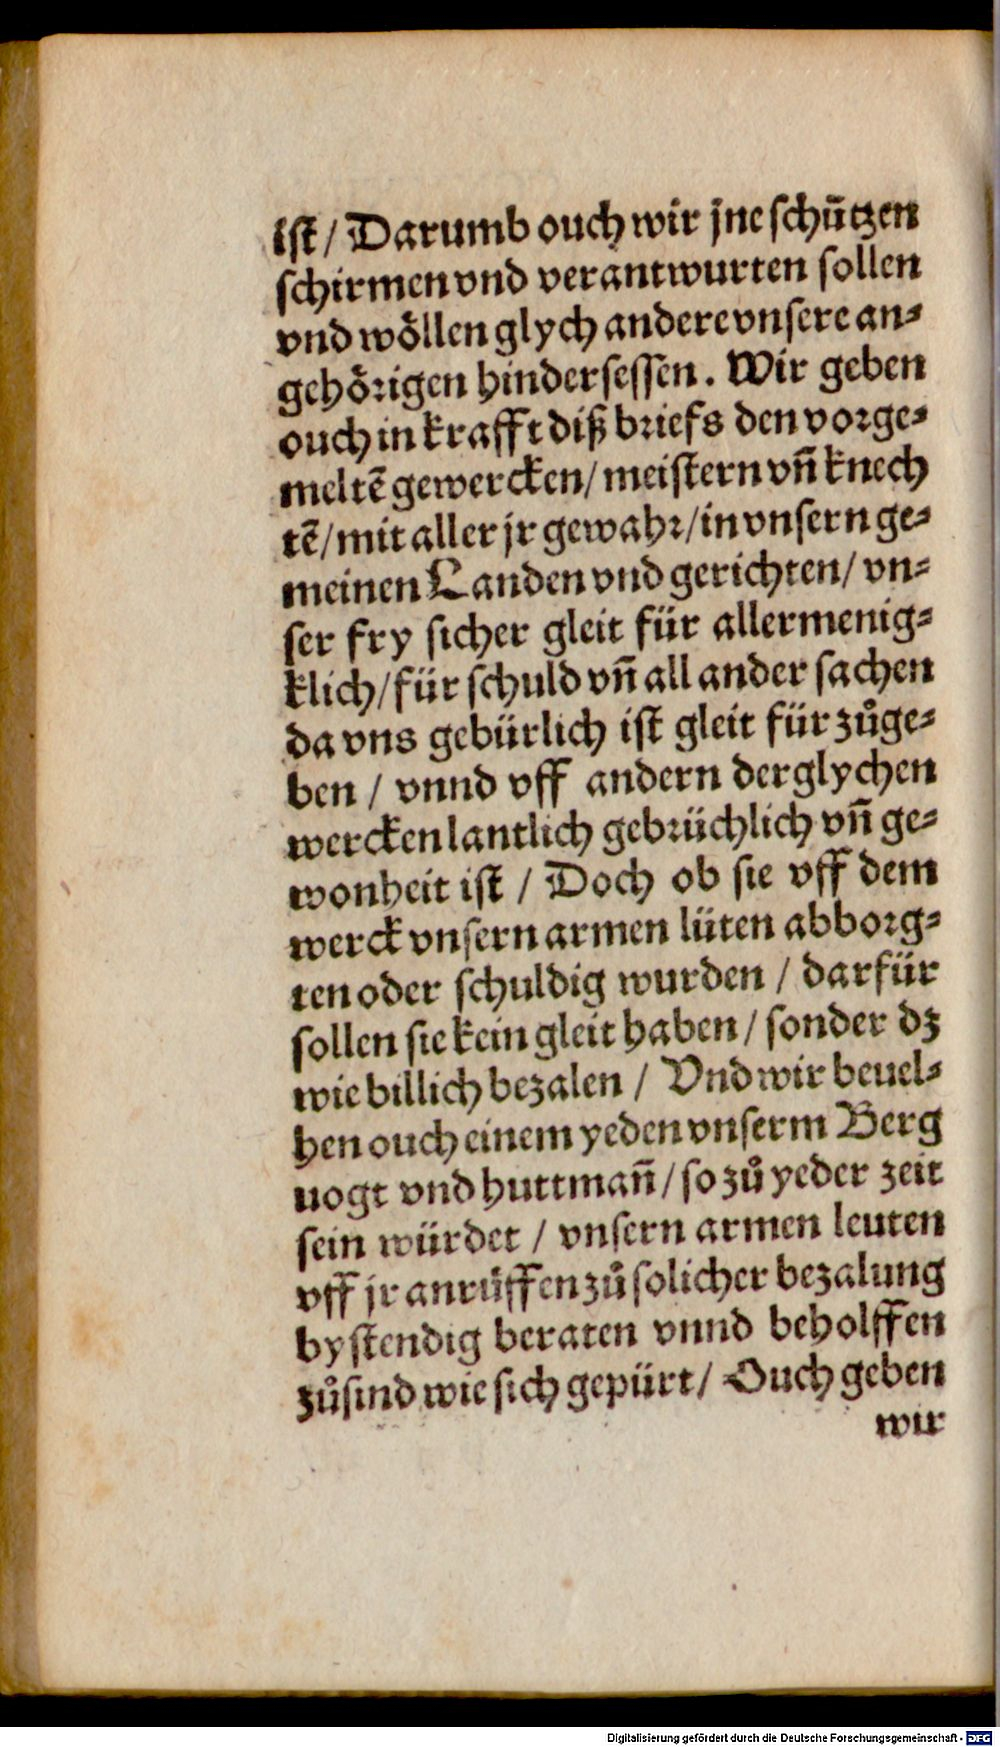 ist / Darumb ouch wir jne schützen
schirmen vnd verantwurten sollen
vnd wöllen glych andere vnsere an⸗
gehörigen hindersessen. Wir geben
ouch in krafft diß briefs den vorge⸗
meltẽ gewercken / meistern vñ knech
tẽ / mit aller jr gewahr / in vnsern ge⸗
meinen Landen vnd gerichten / vn⸗
ser fry sicher gleit für allermenig⸗
klich / für schuld vñ all ander sachen
da vns gebürlich ist gleit für zůge⸗
ben / vnnd vff andern derglychen
wercken lantlich gebrüchlich vñ ge⸗
wonheit ist / Doch ob sie vff dem
werck vnsern armen lüten abborg⸗
ten oder schuldig wurden / darfür
sollen sie kein gleit haben / sonder dz
wie billich bezalen / Vnd wir beuel⸗
hen ouch einem yeden vnserm Berg
uogt vnd huttmañ / so zů yeder zeit
sein würdet / vnsern armen leuten
vff jr anrüffen zů solicher bezalung
bystendig beraten vnnd beholffen
zůsind wie sich gepürt / Ouch geben
wir
Digitalisierung gefördert durch die Deutsche Forschungsgemeinschaft - DFG